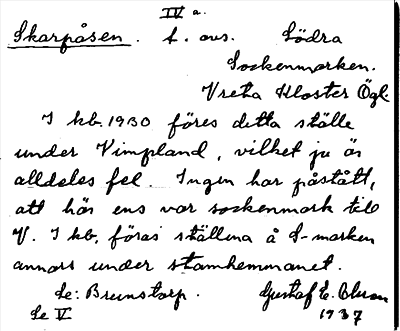 IV a.
Skarpåsen. t. avs. Södra
Sockenmarken.
Vreta Kloster Ögl.
I kb. 1930 föres detta ställe
under Vimpland, vilket ju är
alldeles fel. Ingen har påstått,
att här ens var sockenmark till
V. I kb. föras ställena å S-marken
annars under stamhemmanet.
Se: Brunstorp. Gustaf E. Olson
Se V 1937